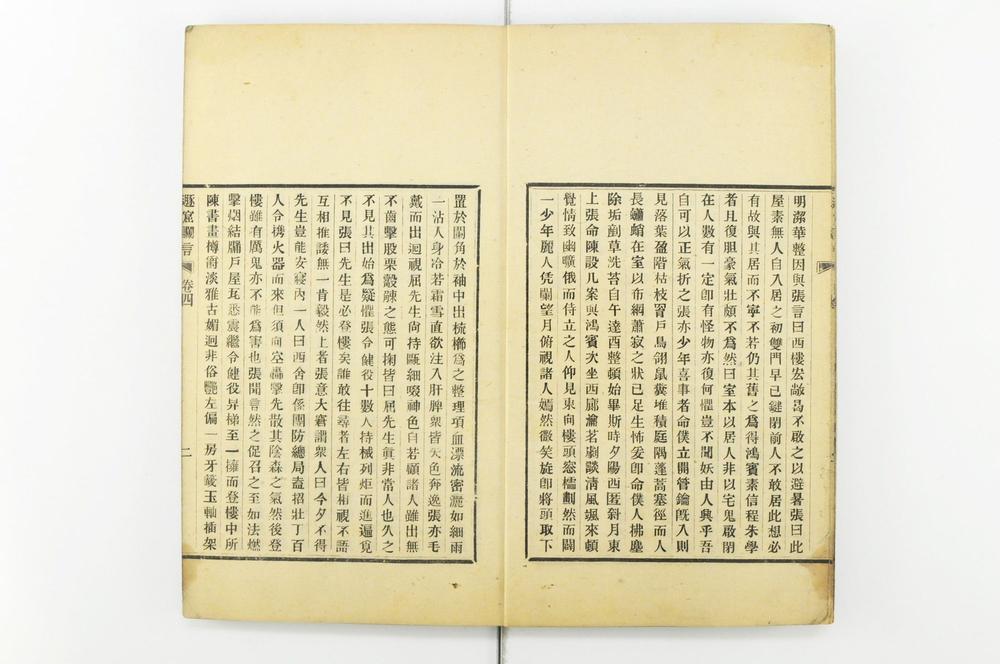 明潔華整因與張言曰西樓宏敞曷不啟之以避暑張曰此
屋素無人自入居之初雙門早已鍵閉前人不敢居此想必
有故與其居而不寧不若仍其舊之爲得鴻賓素信程朱學
者且復膽豪氣壯頗不爲然曰室本以居人非以宅鬼啟閉
在人數有一定卽有怪物亦復何懼豈不聞妖由人興乎吾
自可以正氣折之張亦少年喜事者命僕立開管鑰旣入則
見落葉盈階枯枝胃戶鳥翎鼠糞堆積庭隅蓬蒿塞徑而人
長蠨蛸在室以布網蕭寂之狀已足生怖爰卽命僕人拂塵
除垢剷草洗苔自午達酉整頓始畢斯時夕陽西匿斜月東
上張命陳設几案與鴻賓次坐西廊瀹茗劇談淸風颯來頓
覺情致幽曠俄而侍立之人仰見東向樓頭窓櫺劃然而闢
一少年麗人凭闌望月俯視諸人嫣然微笑旋卽將頭取下
置於闌角於袖中出梳櫛爲之整理項血漂流密灑如細雨
一沾人身冷若霜雪直欲注入肝脾衆皆失色奔逸張亦毛
戴而出迴視屈先生尙持甌細啜神色自若顧諸人雖出無
不齒擊股栗觳觫之態可掬皆曰屈先生眞非常人也久之
不見其出始爲疑懼張令健役十數人持械列炬而進遍覓
不見張曰先生是必登樓矣誰敢往尋者左右皆相視不語
互相推諉無一肯毅然上者張意大窘謂衆人曰今夕不得
先生豈能安寢內一人曰西舍卽係團防總局盍招壯丁百
人令携火器而來但須向空轟擊先散其陰森之氣然後登
樓雖有厲鬼亦不能爲害也張聞言然之促召之至如法燃
擊烟結牖戶屋瓦悉震繼令健役舁梯至一擁而登樓中所
陳書畫樽彝淡雅古媚迥非俗艷左偏一房牙籤玉軸插架
遯窟讕言 卷四 二